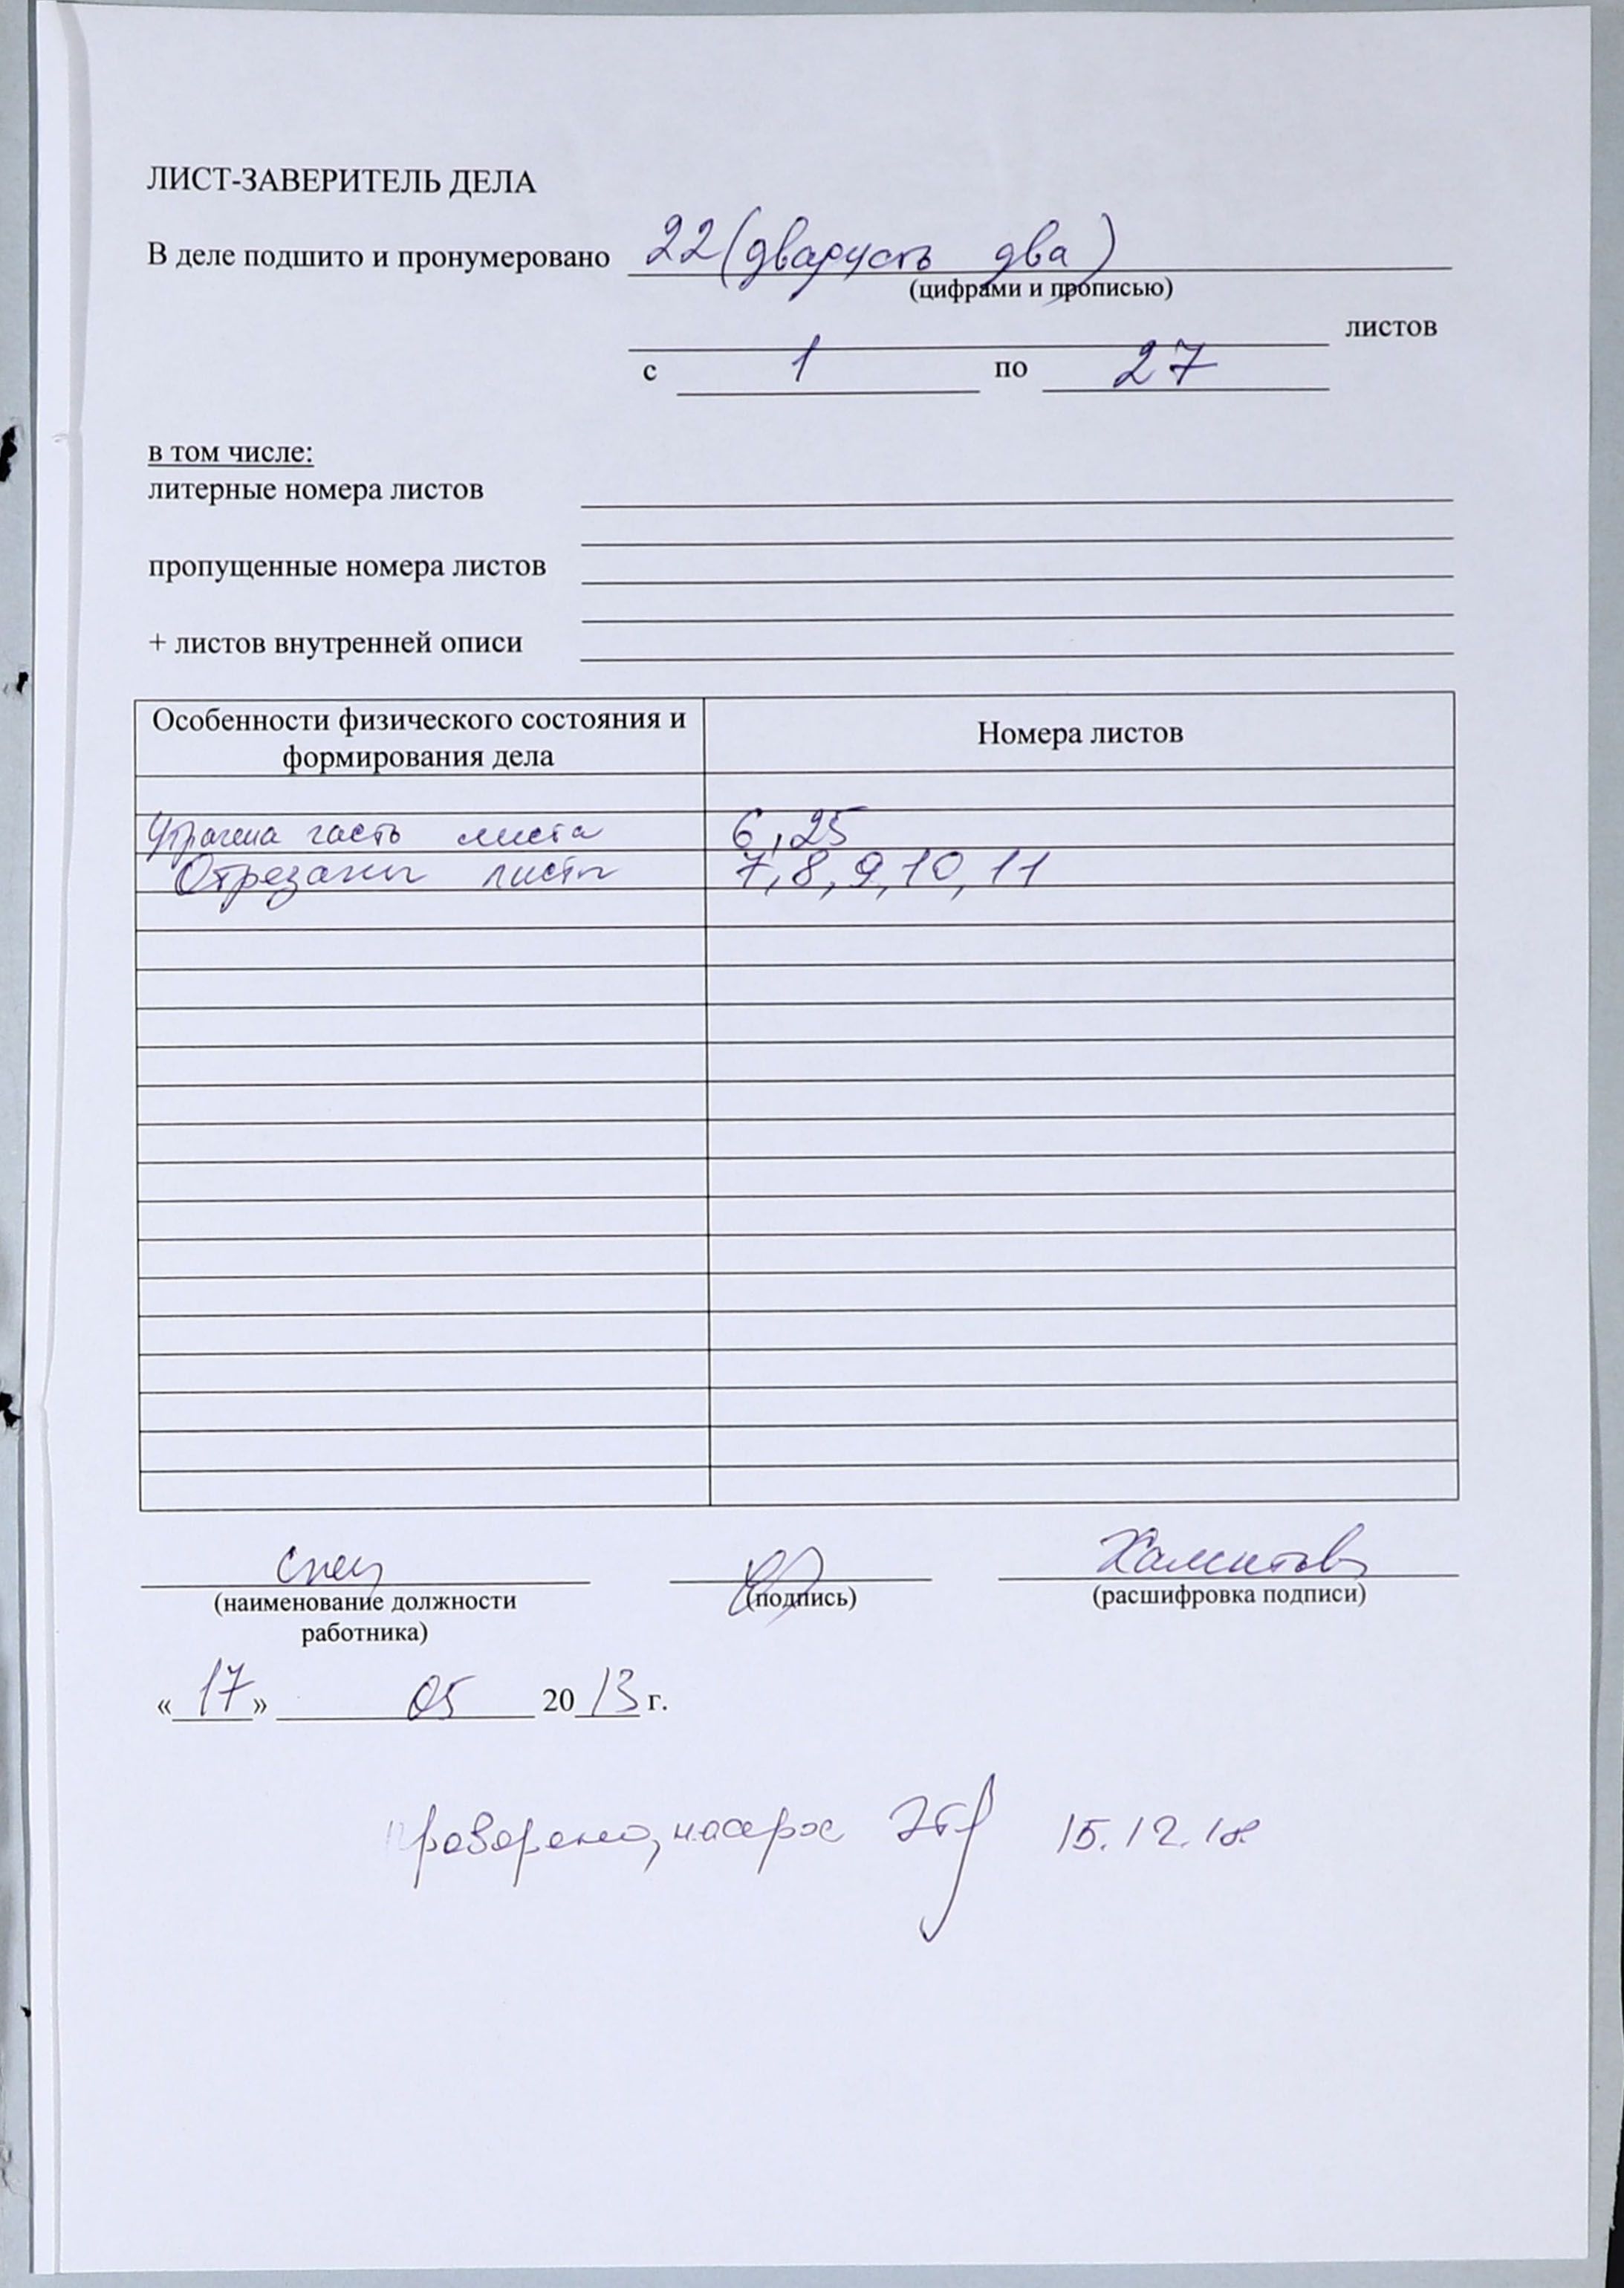 ЛИСТ-ЗАВЕРИТЕЛЬ ДЕЛА
В деле подшито и пронумеровано 22 (двадцать два)
(цифрами и прописью)
листов
с 1 по 27
в том числе:
литерные номера листов
пропущенные номера листов
+ листов внутренней описи
Особенности физического состояния и формирования дела
Номера листов
Утрачена часть листа 6, 25
Отрезаны листы 7, 8, 9, 10, 11
спец
(наименование должности
работника)
(подпись)
(расшифровка подписи)
« 17 » 05 20 13 г.
проверено, 15.12.18